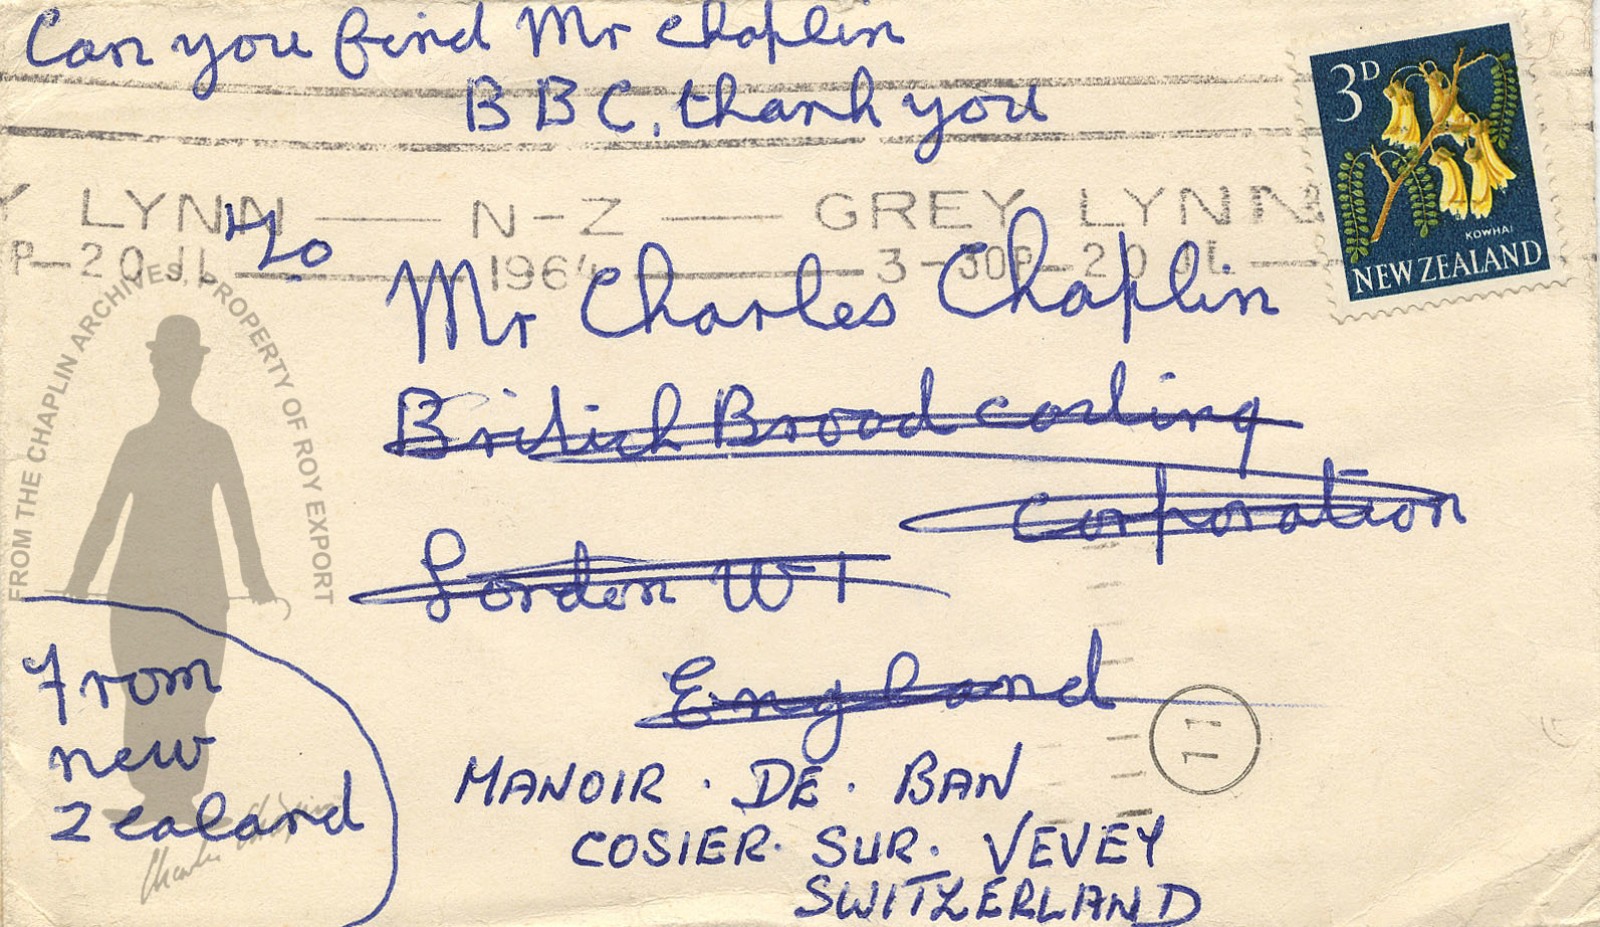 Can you find Mr Chaplin
BBC, thank you
3D
KOWHAI
NEW ZEALAND
Y LYNN — N-Z — GREY LYNN
P—20 JL — 1964 — 3-30P—20 JL —
To
Mr Charles Chaplin
British Broadcasting
Corporation
London W1
England
MANOIR . DE . BAN
COSIER . SUR . VEVEY
SWITZERLAND
From
new
Zealand
11
FROM THE CHAPLIN ARCHIVES, PROPERTY OF ROY EXPORT
Charlie Chaplin